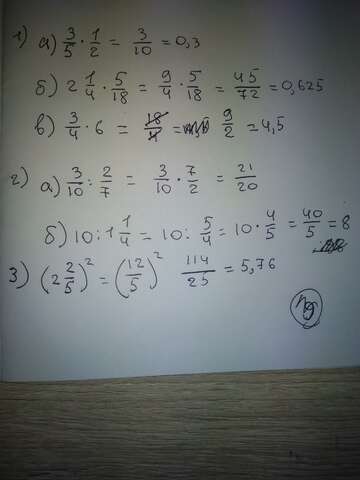 1) а) 3/5 · 1/2 = 3/10 = 0,3
б) 2 1/4 · 5/18 = 9/4 · 5/18 = 45/72 = 0,625
в) 3/4 · 6 = 18/4 = 9/2 = 4,5
2) а) 3/10 : 2/7 = 3/10 · 7/2 = 21/20
б) 10 : 1 1/4 = 10 : 5/4 = 10 · 4/5 = 40/5 = 8
3) (2 2/5)² = (12/5)² 114/25 = 5,76